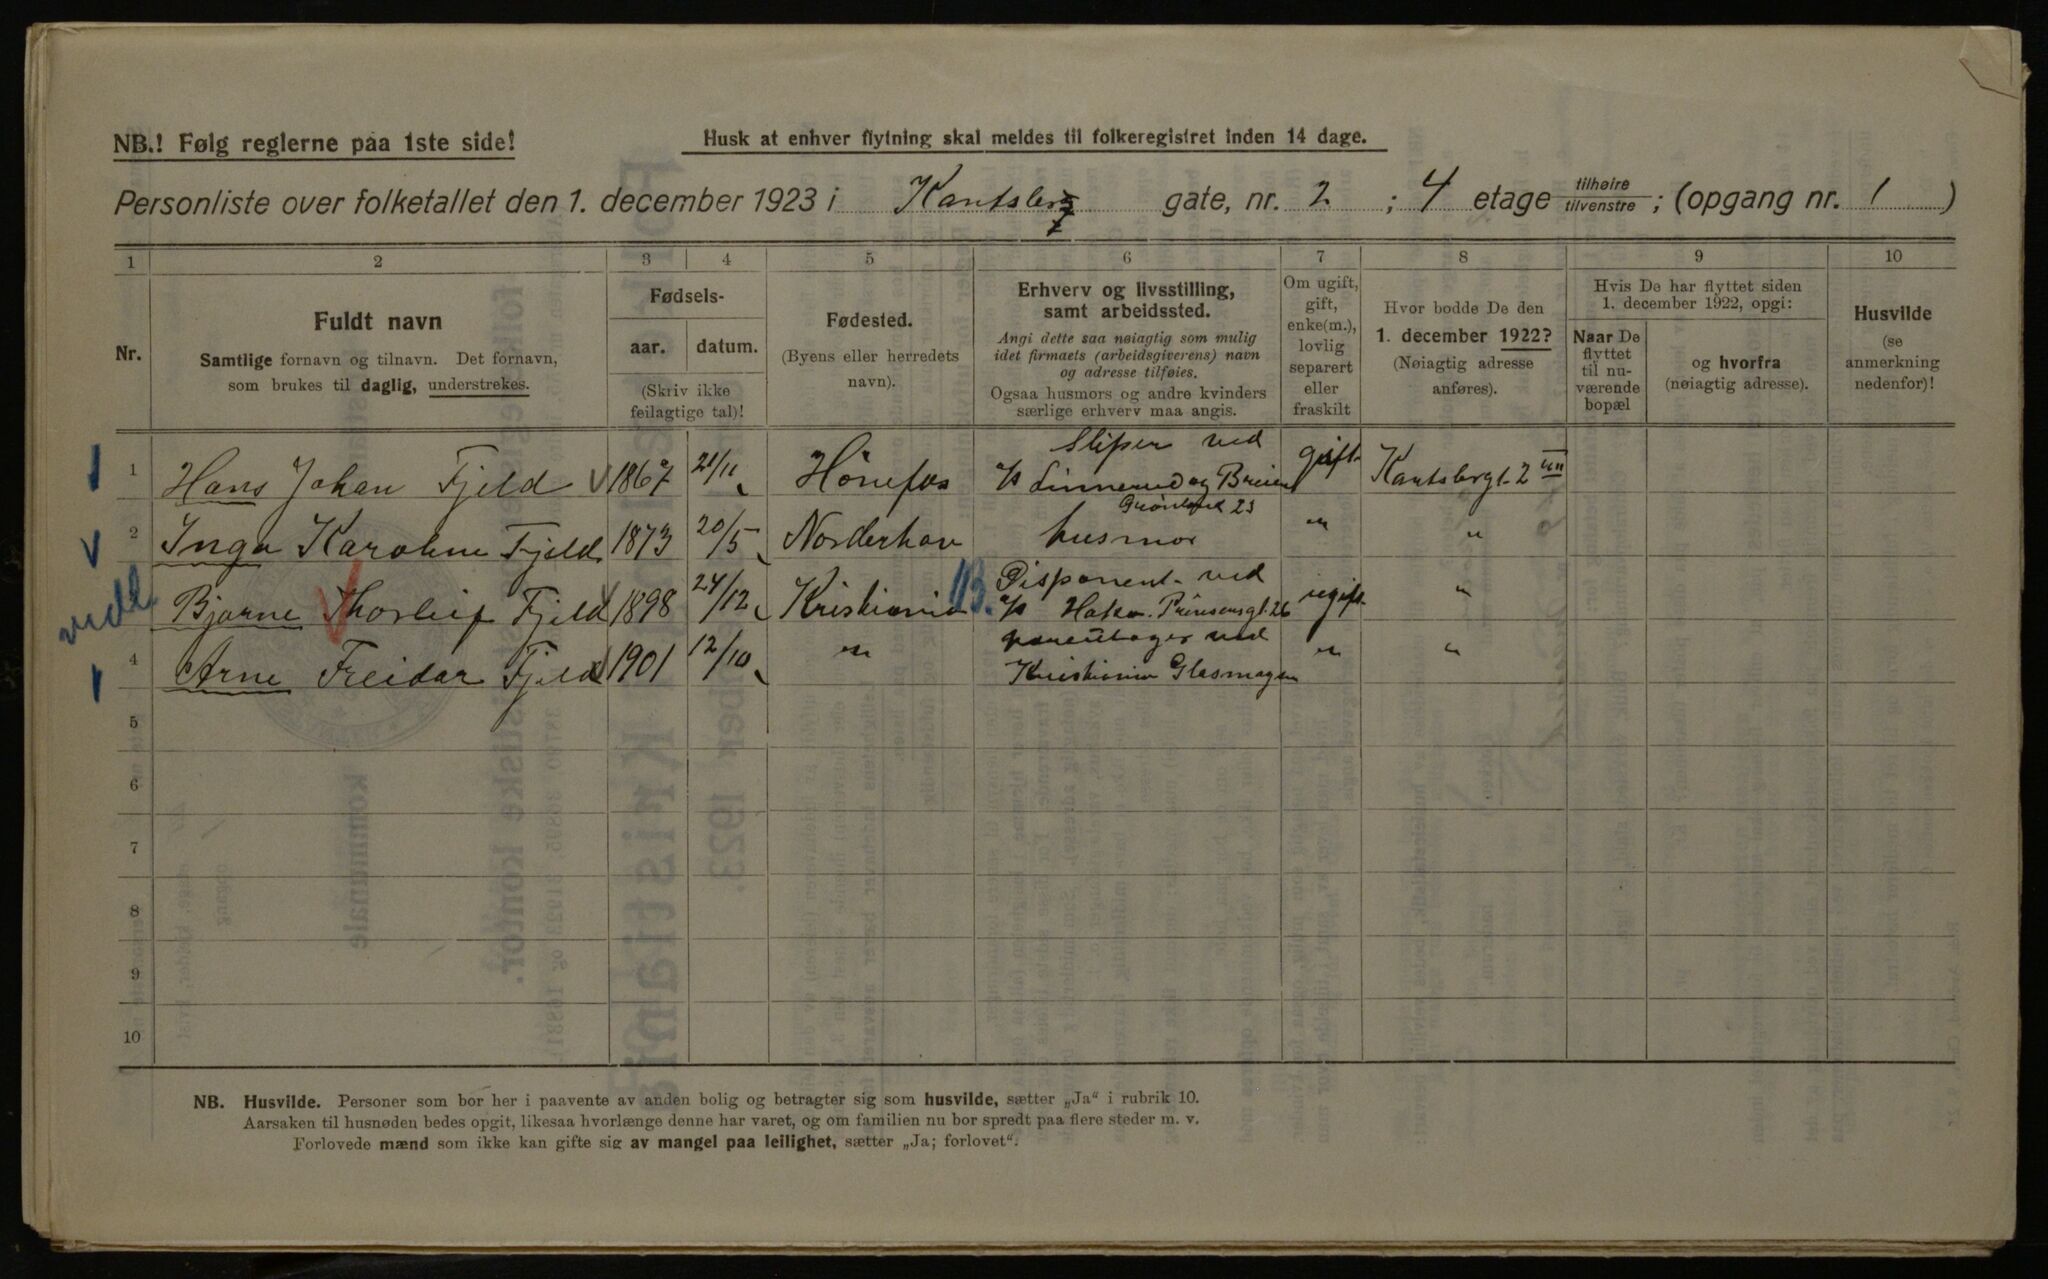 NB.! Følg reglerne paa 1ste side!
Husk at enhver flytning skal meldes til folkeregistret inden 14 dage.
Personliste over folketallet den 1. december 1923 i Kantsberg gate, nr. 2 ; 4 etage tilhøire tilvenstre ; (opgang nr. 1 )
1 2 3 4 5 6 7 8 9 10
Nr.
Fuldt navn
Samtlige fornavn og tilnavn. Det fornavn,
som brukes til daglig, understrekes.
Fødsels-
aar. datum.
(Skriv ikke
feilagtige tal)!
Fødested.
(Byens eller herredets
navn).
Erhverv og livsstilling,
samt arbeidssted.
Angi dette saa nøiagtig som mulig
idet firmaets (arbeidsgiverens) navn
og adresse tilføies.
Ogsaa husmors og andre kvinders
særlige erhverv maa angis.
Om ugift,
gift,
enke(m.),
lovlig
separert
eller
fraskilt
Hvor bodde De den
1. december 1922?
(Nøiagtig adresse
anføres).
Hvis De har flyttet siden
1. december 1922, opgi:
Naar De
flyttet
til nu-
værende
bopæl
og hvorfra
(nøiagtig adresse).
Husvilde
(se
anmerkning
nedenfor)!
1 Hans Johan Fjeld 1867 21/11 Hønefos Sliper ved
A/S Linnerud og Breien
Grønland 23 gift Kantsbergt. 2 III
2 Inga Karoline Fjeld 1873 20/5 Norderhov husmor " "
Bjarne Thorleif Fjeld 1898 24/12 Kristiania Disponent ved
A/S Hatko. Prinsensgt. 26 ugift "
4 Arne Freidar Fjeld 1901 12/10 " ved
Kristiania Glasmagasin " "
5
6
7
8
9
10
NB. Husvilde. Personer som bor her i paavente av anden bolig og betragter sig som husvilde, sætter „Ja“ i rubrik 10.
Aarsaken til husnøden bedes opgit, likesaa hvorlænge denne har varet, og om familien nu bor spredt paa flere steder m. v.
Forlovede mænd som ikke kan gifte sig av mangel paa leilighet, sætter „Ja; forlovet“.